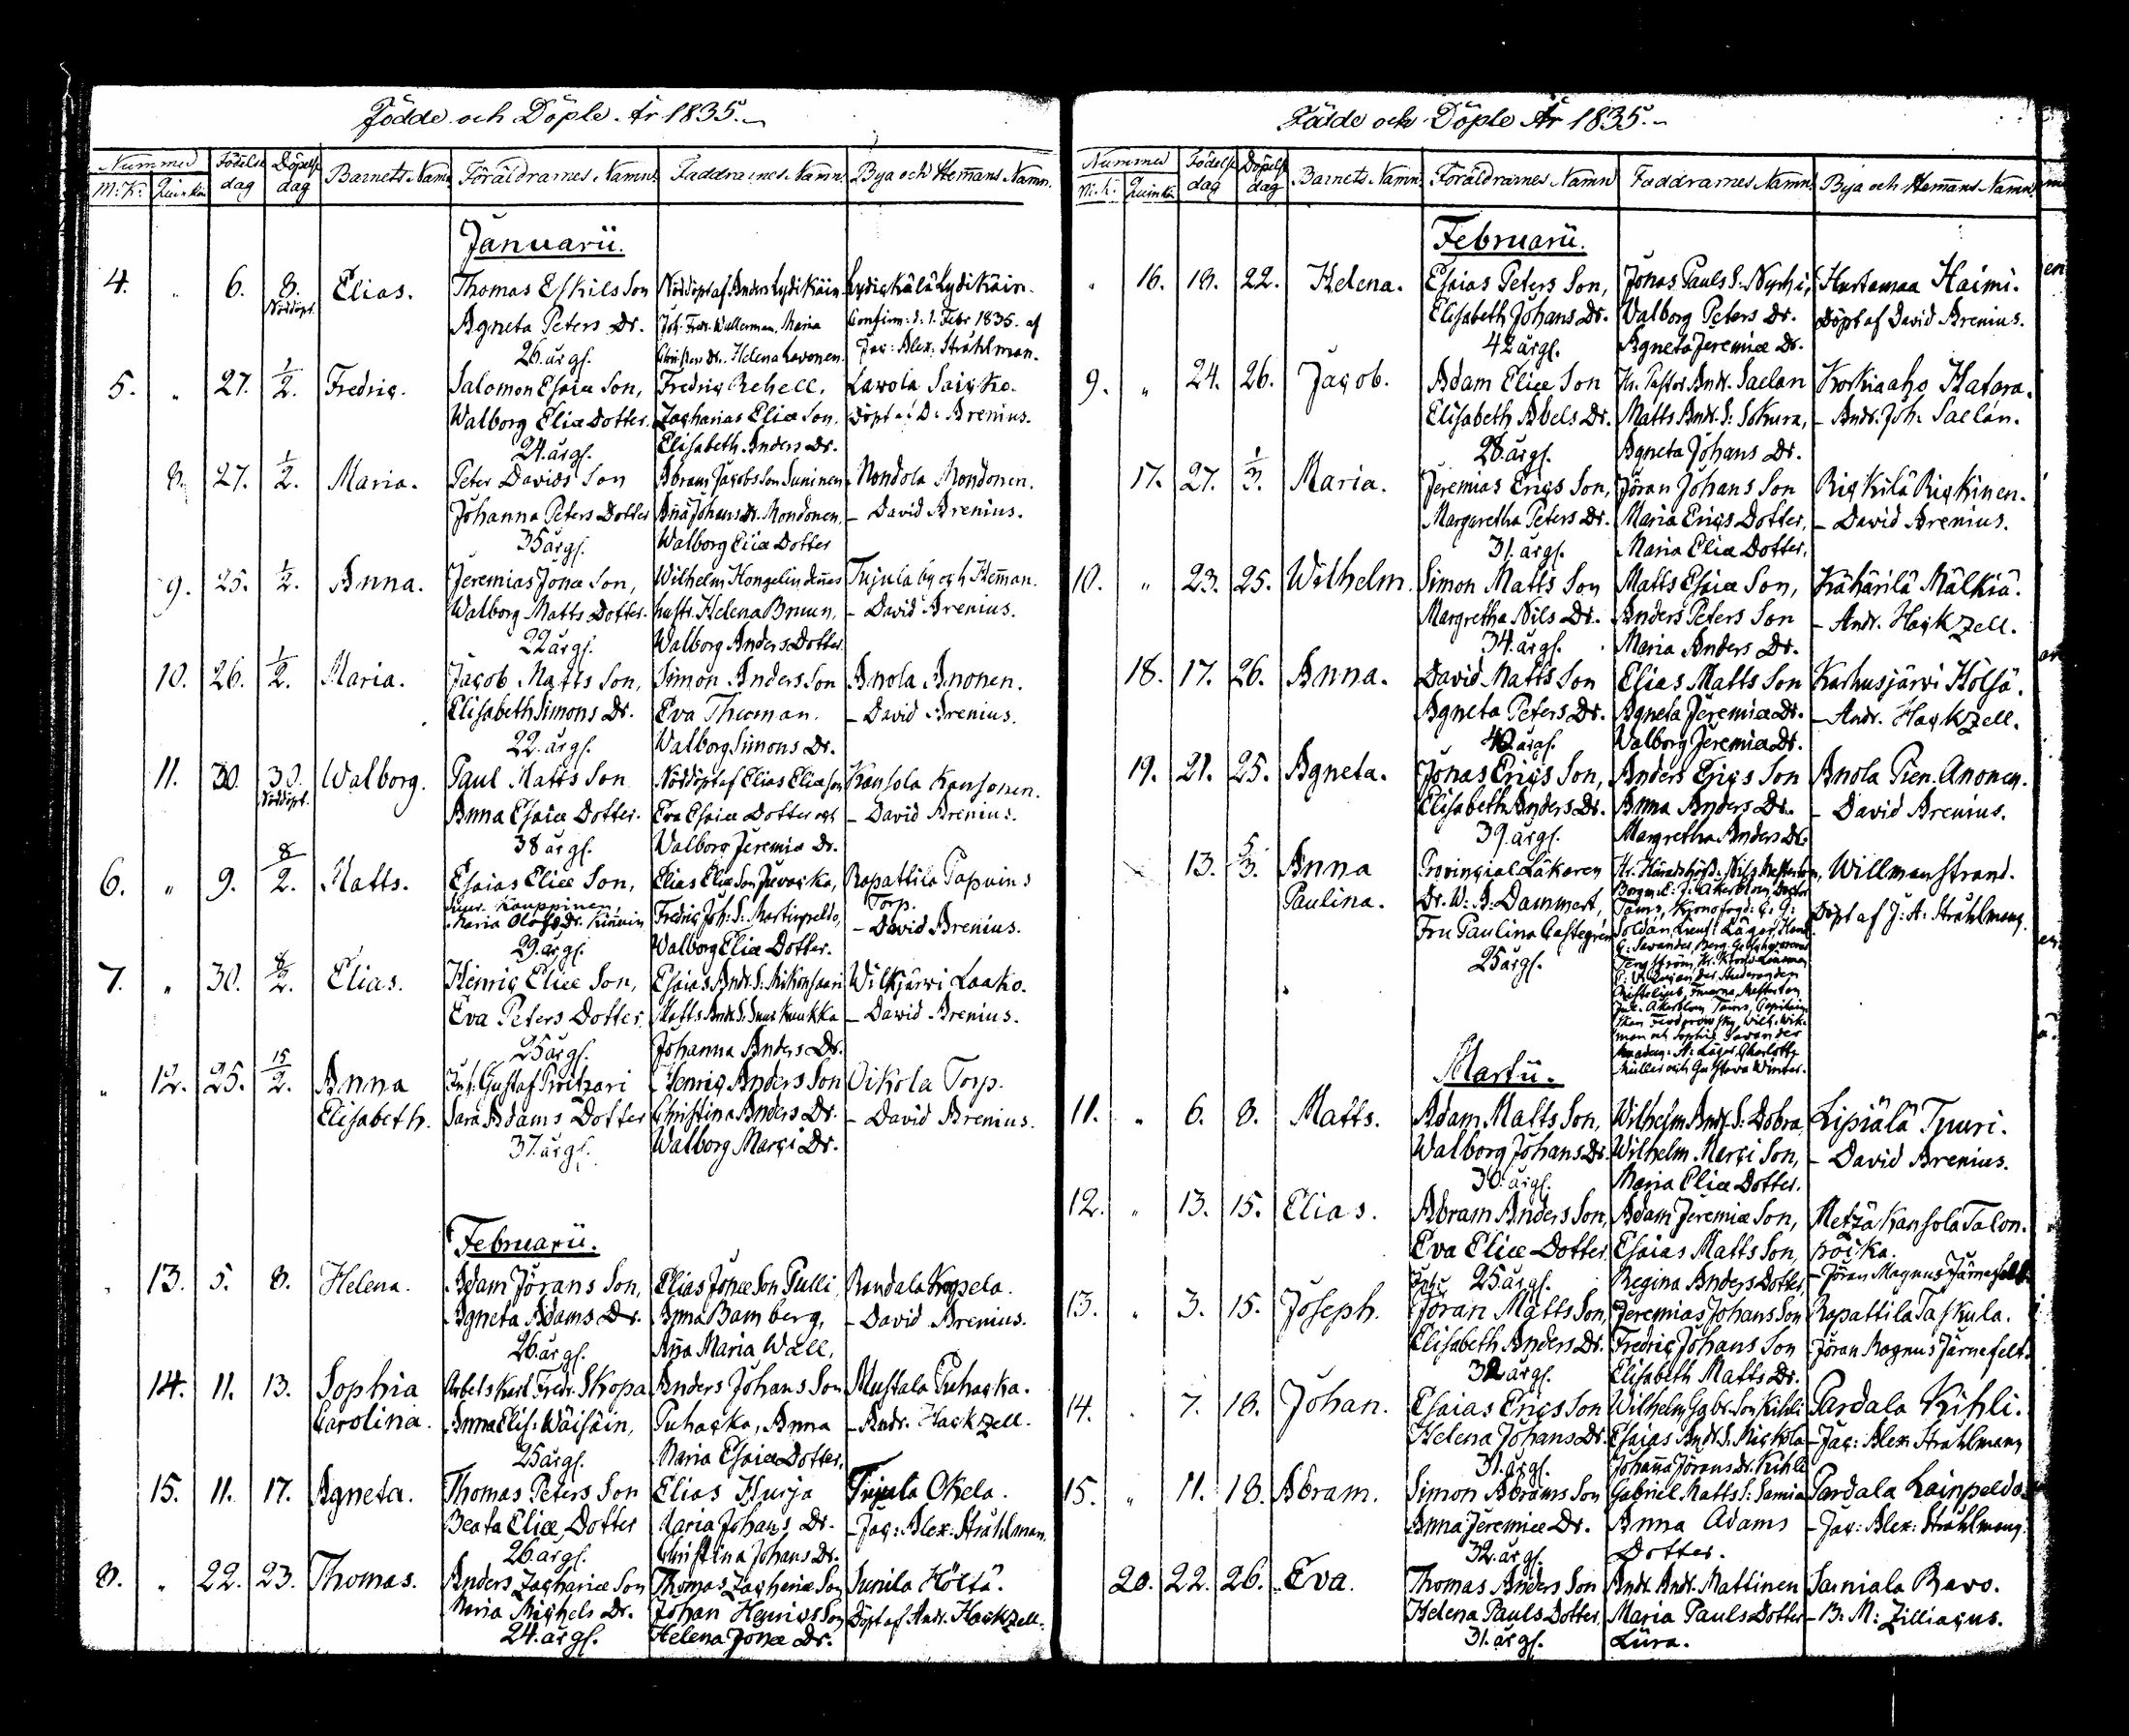 Födde och Döpte År 1835.
Nummer Födelse Döpelse Barnets Namn Föräldrarnes Namn Faddrarnes Namn Bya och Hemans Namn
M: K: Quinkön dag dag
Januarii.
4. " 6. 8. Elias. Thomas Eskils Son Nöddöpt af Anders Lydikäin Lydikälä Lydikäin.
Nöddöpt. Agneta Peters Dr. Joh. Fredr. Wallerman, Maria Confirm: d. 1. Febr 1835. af
26. årg. Christers Dr. Helena Lavonen. Jac: Alex: Stråhlman.
5. " 27. 1/2. Fredric. Salomon Esaiæ Son, Fredric Rehell, Lavola Saicko.
Walborg Eliæ Dotter. Zacharias Eliæ Son, Döpt af D: Arenius.
24. årg. Elisabeth Anders Dr.
8. 27. 1/2. Maria. Peter Davids Son Abram Jacobs Son Suninen, Nondola Nondonen.
Johanna Peters Dotter Aña Johans Dr. Nondonen, – David Arenius.
35 årg. Walborg Eliæ Dotter
9. 25. 1/2. Anna. Jeremias Jonæ Son, Wilhelm Hongelin deñes Tujula by och Heman.
Walborg Matts Dotter. hustr. Helena Bruun, – David Arenius.
22 årg. Walborg Anders Dotter
10. 26. 1/2. Maria. Jacob Matts Son, Simon Anders Son Anola Anonen.
Elisabeth Simons Dr. Eva Theman. – David Arenius.
22. årg. Walborg Simons Dr.
11. 30. 30. Walborg. Paul Matts Son Nöddöpt af Elias Eliæ Son Kansola Kansonen.
Nöddöpt. Anna Esaiæ Dotter. Eva Esaiæ Dotter och – David Arenius.
38 årg. Walborg Jeremiæ Dr.
6. " 9. 8/2. Matts. Esaias Eliæ Son, Elias Eliæ Son Juvacka, Rapattila Papuins
Kauppinen, Fredric Joh: S: Martinpeldo, Torp.
Maria Olofs Dr. Kinnuin Walborg Eliæ Dotter. – David Arenius.
29. årg.
7. " 30. 8/2. Elias. Henric Eliæ Son, Esaias Andr. S: Mikonsaari Wilkjärvi Laako.
Eva Peters Dotter, Matts Andr. S: Suur Kuukka – David Arenius.
25 årg. Johanna Anders Dr.
" 12. 25. 15/2. Anna Inh: Gustaf Henric Anders Son Oikola Torp.
Elisabeth. Sara Adams Dotter Christina Anders Dr. – David Arenius.
37. årg. Walborg Marci Dr.
Februarii.
" 13. 5. 8. Helena. Adam Jörans Son, Elias Jonæ Son Pulli, Randala
Agneta Adams Dr. Anna Bamberg, – David Arenius.
26. årg. Aña Maria Wæll,
14. 11. 13. Sophia Arbets Karl Fredr. Skopa Anders Johans Son Mustala Puhacka.
Carolina. Anna Elis: Wäisäin, Puhacka, Anna – Andr. Hackzell.
25 årg. Maria Esaiæ Dotter,
15. 11. 17. Agneta. Thomas Peters Son Elias Hurja Tujula Okela.
Beata Eliæ Dotter Maria Johans Dr. – Jac: Alex: Stråhlman.
26. årg. Christina Johans Dr.
8. " 22. 23. Thomas. Anders Zachariæ Son Thomas Zachariæ Son Sunila Höltä.
Maria Michels Dr. Johan Henrics Son Döpt af Andr. Hackzell.
24. årg. Helena Jonæ Dr.
Födde och Döpte År 1835.
Nummer Födelse Döpelse Barnets Namn Föräldrarnes Namn Faddrarnes Namn Bya och Hemans Namn
M: K: Quinkön dag dag
Februarii.
" 16. 18. 22. Helena. Esaias Peters Son, Jonas Pauls S: Nyrhi, Hurtamaa Haimi.
Elisabeth Johans Dr. Walborg Peters Dr. Döpt af David Arenius.
42 årg. Agneta Jeremiæ Dr.
9. " 24. 26. Jacob. Adam Eliæ Son Hr. Pastor Andr. Saelan Korkiaaho Hatara.
Elisabeth Abels Dr. Matts Andr. S: Sokura, – Andr. Joh: Saelán.
28. årg. Agneta Johans Dr.
17. 27. 1/3. Maria. Jeremias Erics Son, Jöran Johans Son Rickilä Rickinen.
Margaretha Peters Dr. Maria Erics Dotter, – David Arenius.
31. årg. Maria Eliæ Dotter,
10. " 23. 25. Wilhelm. Simon Matts Son Matts Esaiæ Son, Kähärilä Mälkiä.
Margretha Nils Dr. Anders Peters Son – Andr. Hackzell.
34. årg. Maria Anders Dr.
18. 17. 26. Anna. David Matts Son Elias Matts Son Karhusjärvi Hölsä.
Agneta Peters Dr. Agneta Jeremiæ Dr. – Andr. Hackzell.
40 årg. Walborg Jeremiæ Dr.
19. 21. 25. Agneta. Jonas Erics Son, Anders Erics Son Anola Pien Anonen.
Elisabeth Anders Dr. Anna Anders Dr. – David Arenius.
39. årg. Margretha Anders Dr.
13. 5/3. Anna Provincial Läkaren Hr. Häradshöfd: Nils Willmanstrand.
Paulina. Dr. W: A: Dammert, Borgm: J: Åkerblom, Doctor Döpt af J: A: Stråhlman.
Fru Paulina Castegrén Tains, Kronofogd: G: G:
25 årg. Soldan,
Savander,
Tengström, Hr. Krono Länsman
Fruarna
Åkerblom Tains, Capitain
Wilh: Wik-
man och Sophie Savander
Charlotte
Müller och Gustava Winter.
Martii.
11. " 6. 8. Matts. Adam Matts Son, Wilhelm Andr. S: Dobra, Lipiälä Tyuri.
Walborg Johans Dr. Wilhelm Marci Son, – David Arenius.
30. årg. Maria Eliæ Dotter.
12. " 13. 15. Elias. Abram Anders Son, Adam Jeremiæ Son, Metzä Kansola Talon-
Eva Eliæ Dotter, Esaias Matts Son, poika.
25 årg. Regina Anders Dotter, – Jöran Magnus Järnefelt.
13. " 3. 15. Joseph. Inh: Jöran Matts Son, Jeremias Johans Son Rapattila Taskula.
Elisabeth Anders Dr. Fredric Johans Son – Jöran Magnus Järnefelt.
32 årg. Elisabeth Matts Dr.
14. " 7. 18. Johan. Esaias Erics Son Wilhelm Gabr. Son Kihli Pardala Kihli.
Helena Johans Dr. Esaias Andr. S. Mickola – Jac: Alex: Stråhlman
31. årg. Johaña Jörans Dr. Kihli
15. " 11. 18. Abram. Simon Abrams Son Gabriel Matts S: Samia Pardala Lainpeldo.
Anna Jeremiæ Dr. Anna Adams – Jac: Alex: Stråhlman.
32. årg. Dotter.
20. 22. 26. Eva. Thomas Anders Son Andr. Andr. Mattinen Sainiala Ravo.
Helena Pauls Dotter, Maria Pauls Dotter – B: M: Zilliacus.
31. årg. Lüra.